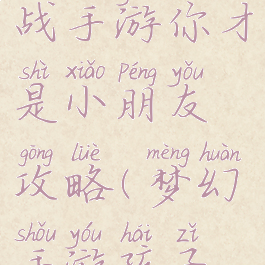 战手游你才
shì xiǎo péng yǒu
是小朋友
gōng lüè mèng huàn
攻略(梦幻
shǒu yóu hái zǐ
手游孩子